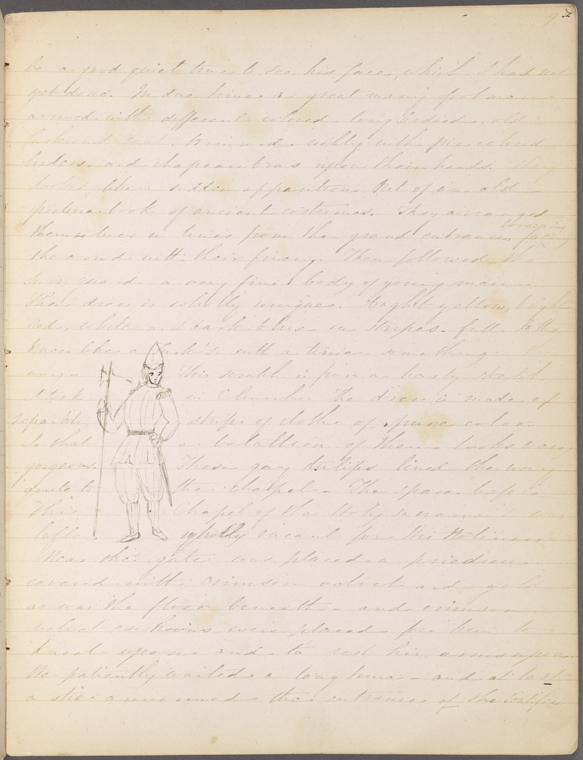 be a good quiet time to see his face, which I had not
yet done. In due time a great many footmen
armed with different colored long bodied old
fashioned coats, trimmed richly with
borders and chapeau bras upon their heads. They
looked like a sudden apparition out of an old
picture book of ancient costumes. They arranged
themselves in lines from the grand entrance, keeping
the crowd with their Then followed the
Swiss guard a very fine body of young men
Their dress is wholly unique. Bright yellow, bright
red, white and dark blue in stripes full to the
knees like a Turk's with a tunic something
This sketch is from a hasty sketch
I took in Church. The dress is made of
separate stripes of cloth of pure color
so that a battalion of them looks very
gorgeous. These gay tulips lined the way
quite to the chapel. The space before
this Chapel of the Holy Sacrament was
left wholly vacant for His Holiness
Near the gate was placed a priedieu
covered with crimson velvet and gold
as was the floor beneath and crimson
velvet cushions were placed for him to
kneel upon and to rest his arms upon
We patiently waited a long time and at last
a stir announced the entrance of the Pontifex